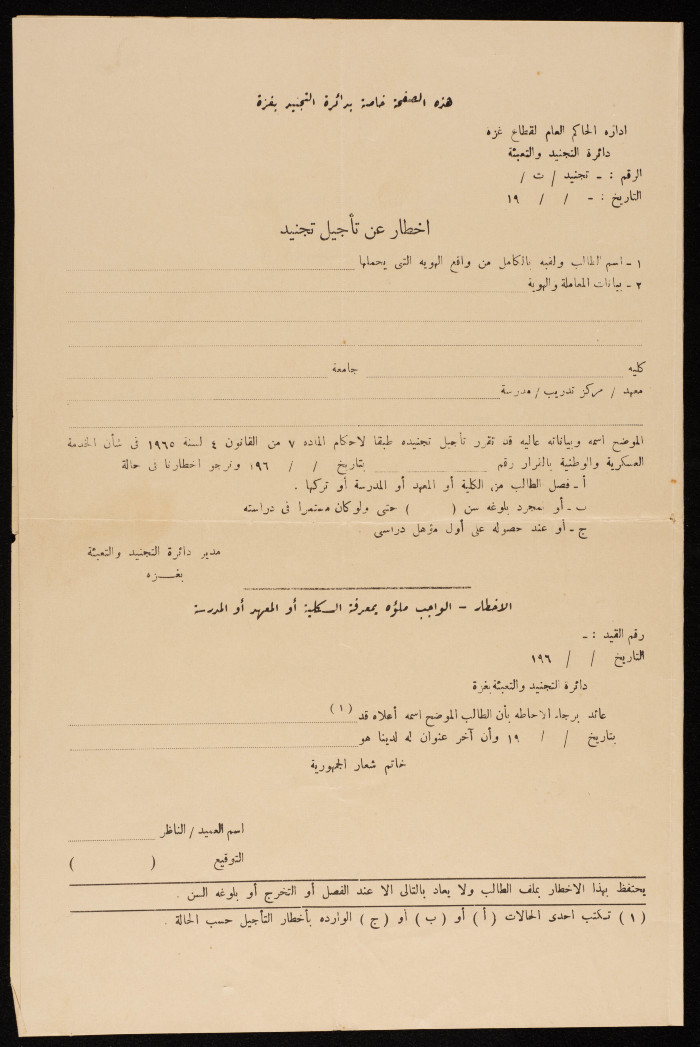 هذه الصفحة خاصة بدائرة التجنيد بغزة
اداره الحاكم العام لقطاع غزه
دائرة التجنيد والتعبئة
الرقم : - تجنيد / ت /
التاريخ : - / / ١٩
اخطار عن تأجيل تجنيد
١ - اسم الطالب ولقبه بالكامل من واقع الهويه التى يحملها
٢ - بيانات المعاملة والهوية
كليه جامعة
معهد / مركز تدريب / مدرسة
الموضح اسمه وبياناته عاليه قد تقرر تأجيل تجنيده طبقا لاحكام الماده ٧ من القانون ٤ لسنة ١٩٦٥ فى شأن الخدمة
العسكرية والوطنية بالقرار رقم بتاريخ / / ١٩٦ ونرجو اخطارنا فى حالة
أ - فصل الطالب من الكلية أو المعهد أو المدرسة أو تركها .
ب - أو بمجرد بلوغه سن ( ) حتى ولوكان مستمرا فى دراسته
ج - أو عند حصوله على أول مؤهل دراسى
مدير دائرة التجنيد والتعبئة
بغـــزه
الاخطار - الواجب ملؤه بمعرفة الكلية أو المعهد أو المدرسة
رقم القيد : -
التاريخ / / ١٩٦
دائرة التجنيد والتعبئة بغزة
عائد برجاء الاحاطه بأن الطالب الموضح اسمه أعلاه قد (١)
بتاريخ / / ١٩ وأن آخر عنوان له لدينا هو
خاتم شعار الجمهورية
اسم العميد / الناظر
التوقيع ( )
يحتفظ بهذا الاخطار بملف الطالب ولا يعاد بالتالى الا عند الفصل أو التخرج أو بلوغه السن .
( ١ ) تكتب احدى الحالات ( أ ) أو ( ب ) او ( ج ) الوارده بأخطار التأجيل حسب الحالة .